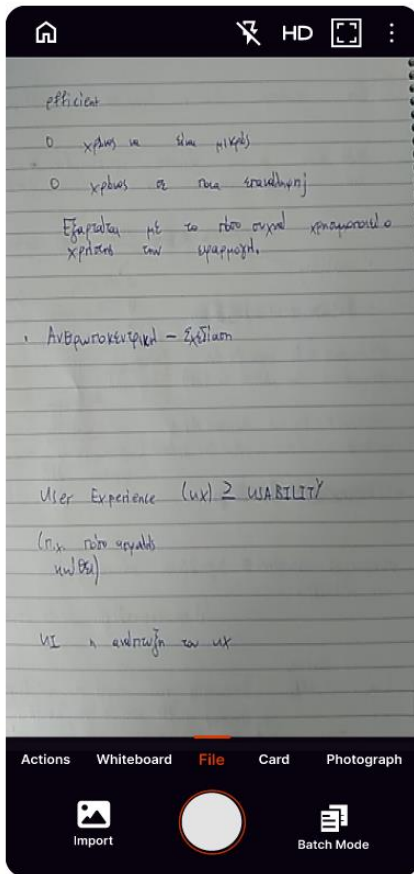 HD
efficient
Ο χρόνος να είναι μικρός
Ο χρόνος σε ποια επανάληψη;
Εξαρτάται με το πόσο συχνά χρησιμοποιεί ο
χρήστης την εφαρμογή.
• Ανθρωποκεντρική - Σχεδίαση
User Experience (UX) ≥ USABILITY
(π.χ. πόσο ασφαλής
)
UI η ανάπτυξη του UX
Actions Whiteboard File Card Photograph
Import Batch Mode